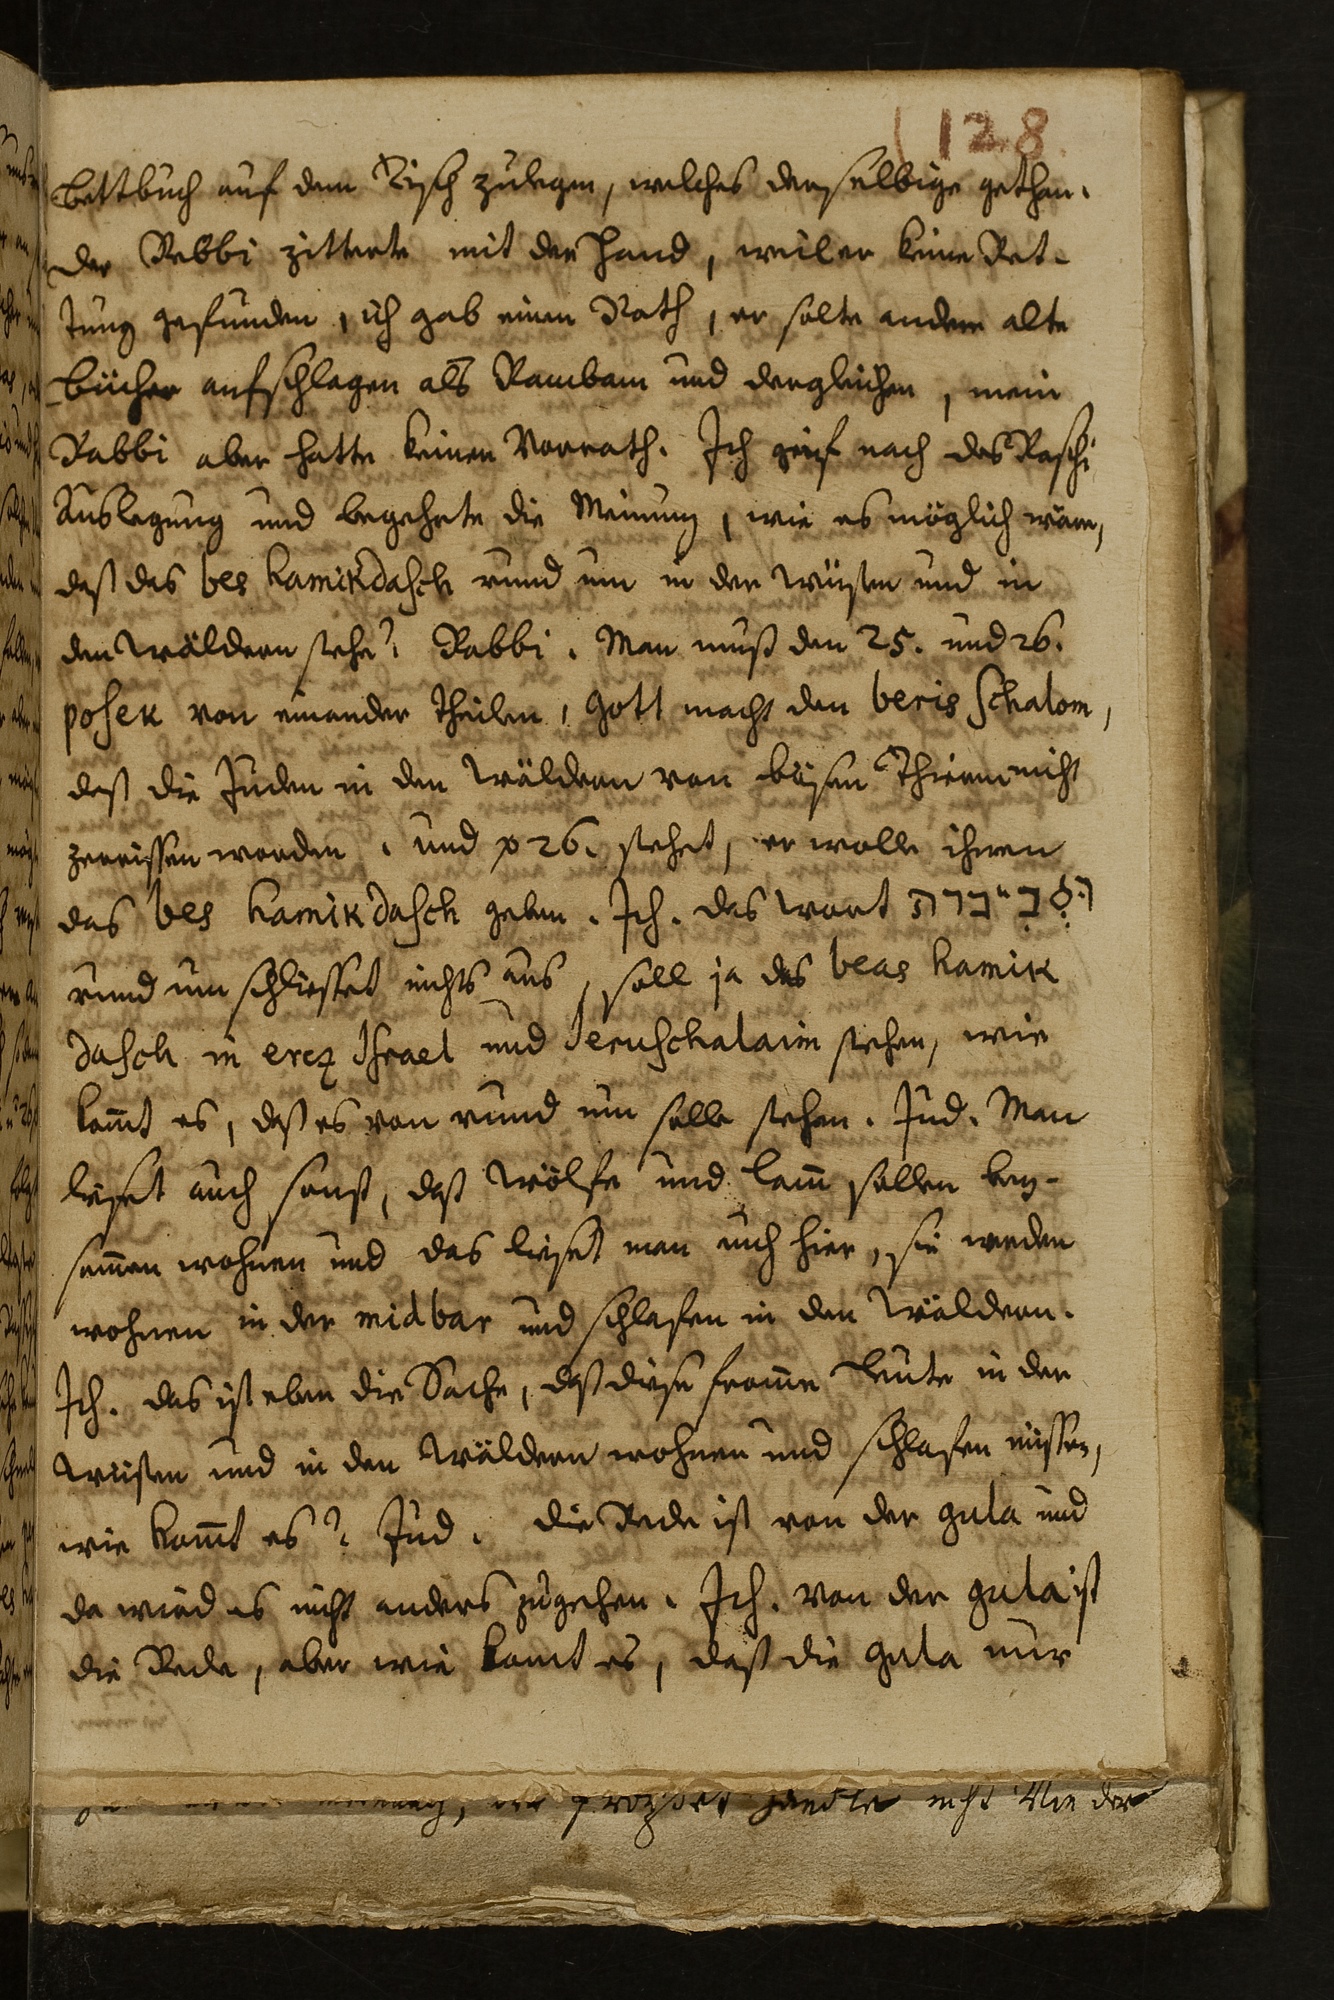 128
bettbuch auf dem Tisch zulegen, welches derselbige gethan.
der Rebbi zitterte mit der Hand, weil er keine Ret-
tung gefunden, ich gab einen Rath, er solte andere alte
bücher aufschlagen als Rambam und dergleichen, mein
Rabbi aber hatte keinen Vorrath. Ich grif nach des Raschi
Auslegung und begehrte die Meinung, wie es möglich wäre,
daß das bes hamikdasch rund um in der Wüsten und in
den Wäldern stehe? Rabbi. Man muß den 25. und 26.
posek von einander theilen, Gott macht den beris schalom,
daß die Juden in den Wäldern von bösen Thieren nicht
zerrissen werden. und p 26. stehet, er wolle ihnen
das bes hamikdasch geben. Ich. das Wort
rund um schliesset nichts aus, soll ja das beas hamik
dasch in erez Israel und Jeruschalaim stehen, wie
kom̅t es, daß es von rund um solle stehen. Jud. Man
lieset auch sonst, daß Wölfe und Lam̅ sollen bey-
sam̅en wohnen und das lieset man auch hier, sie werden
wohnen in der midbar und schlafen in den Wäldern.
Ich. das ist eben die Sache, daß diese from̅e Leute in der
Wüsten und in den Wäldern wohnen und schlafen müssen,
wie kom̅t es? Jud. die Rede ist von der gula und
da wird es nicht anders zugehen. Ich. von der gula ist
die Rede, aber wie komt es, daß die gula nur
nicht Wie der